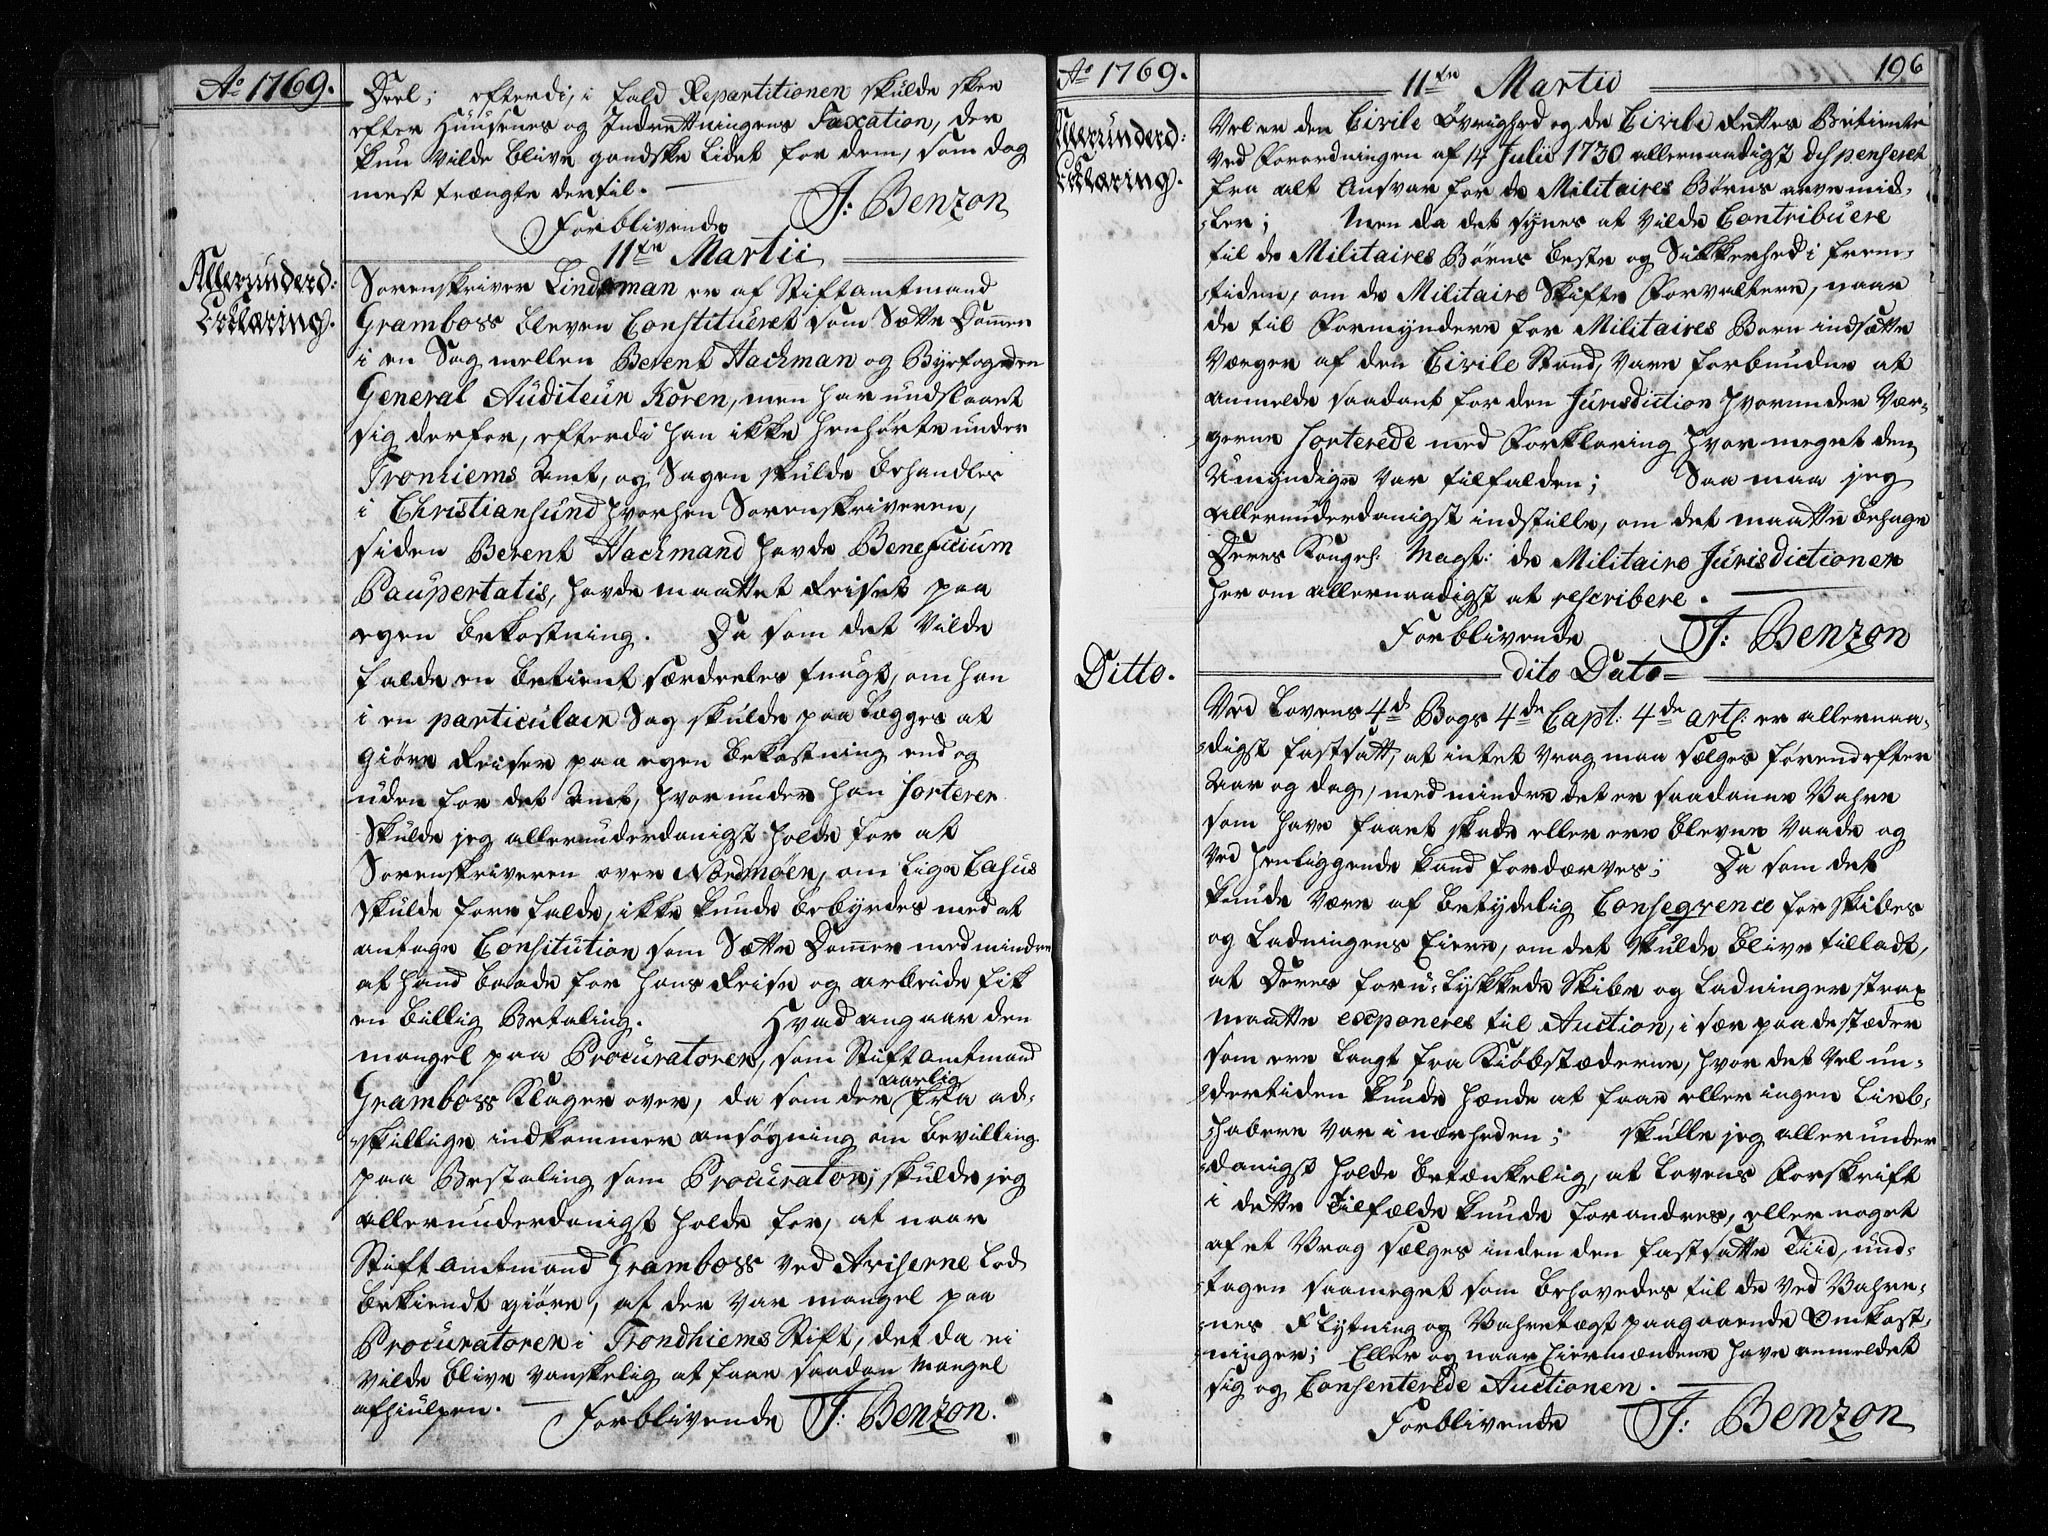 Ao 1769.
Deel; efterdi, i fald Repartitionen skulde skee
efter Huusenes og Indretningens Taxation, der
kun vilde blive gandske lidet for dem, som dog
mest trængte dertil.
Forblivende J: Benzon
11te Martii
Allerunderd:
Erklæring.
Sorenskriver Lindeman er af Stiftamtmand
Gramboss bleven Constitueret som Sætte Dommer
i en Sag mellem Berent Hachman og Byefogeden
General Auditeur Koren, men har undslaaet
sig derfor, efterdi han ikke henhørte under
Tronhiems Amt, og Sagen skulde behandles
i Christiansund hvorhen Sorenskriveren,
siden Berent Hachmand havde Beneficium
Paupertatis, havde maattet Reiset paa
egen bekostning. Da som det vilde
falde en betient særdeeles tungt, om han
i en particulair Sag skulde paa lægges at
giøre Reiser paa egen bekostning end og
uden for det Amt, hvorunder han Sorterer
Skulde jeg allerunderdanigst holde for at
Sorenskriveren over Nordmøen, om lige Casus
skulde fore falde, ikke kunde bebyrdes med at
antage Consitution som Sætte Dommer med mindre
at hand baade for hans Reise og arbeide fik
en billig Betaling. Hvad angaar den
mangel paa Procuratorer, som Stiftamtmand
Gramboss Klager over, da som der aarlig fra ad-
skillige indkommer ansøgning om bevilling
paa Bestaling som Procurator; skulde jeg
allerunderdanigst holde for, at naar
Stiftamtmand Gramboss ved Aviserne lod
bekiendt giøre, at der var mangel paa
Procuratorer i Trondhiems Stift, det da ei
vilde blive vanskelig at faae saadan Mangel
afhiulpen. Forblivende J: Benzon.
Ao 1769.
196
11te Martii
Allerunderd:
Erklæring.
Vel er den Civile Øvrighed og de Civile Rettes Betiente
ved Forordningen af 14 Julii 1730 allernaadigst dispenseret
fra alt Ansvar for de Militaires Børns arvemid-
ler; Men da det synes at vilde Contribuere
til de Militaires Børns beste og Sikkerhed i frem-
tiden, om de Militaire Skifte Forvaltere, naar
de til Formyndere for Militaires Born indsætte
Værger af den Civile Stand, vare forbundne at
anmelde saadant for den Jurisdiction hvorunder Vær-
gerne Sorterede med Forklaring hvor meget den
Umyndige var tilfalden; Saa maa jeg
allerunderdanigst indstille, om det maatte behage
Deres Kongel. Mayst: de Militaire Jurisdictioner
her om allernaadigst at rescribere.
Forblivende J: Benzon
dito Dato
Ditto.
Ved Lovens 4de Bogs 4de Capt: 4de artl: er allernaa-
digst fastsatt, at intet Vrag maa sælges førend efter
Aar og dag, med mindre det er saadanne Vahre
som have faaet skade eller ere blevne vaade og
ved henliggende kand fordærves; Da som det
kunde være af betydelig Conseqvence for Skibes
og Ladningens Eiere, om det skulde blive tilladt,
at Deres foru-lykkede Skibe og Ladninger strax
maatte exponeres til Auction, i sær paa de stæder
som ere langt fra Kiøbstæderne, hvor det vel un-
dertiden kunde hænde at faae eller ingen Lieb-
habere var i nærheden; skulle jeg allerunder
danigst holde betænkelig, at Lovens Forskrift
i dette Tilfælde kunde forandres, eller noget
af et Vrag sælges inden den fastsatte Tiid, und-
tagen saameget som behøvedes til de ved Vahre-
nes Flytning og Vahretægt paagaaende Omkost-
ninger; Eller og naar Eiermændene have anmeldet
sig og Consenterede Auctionen.
Forblivende J: Benzon